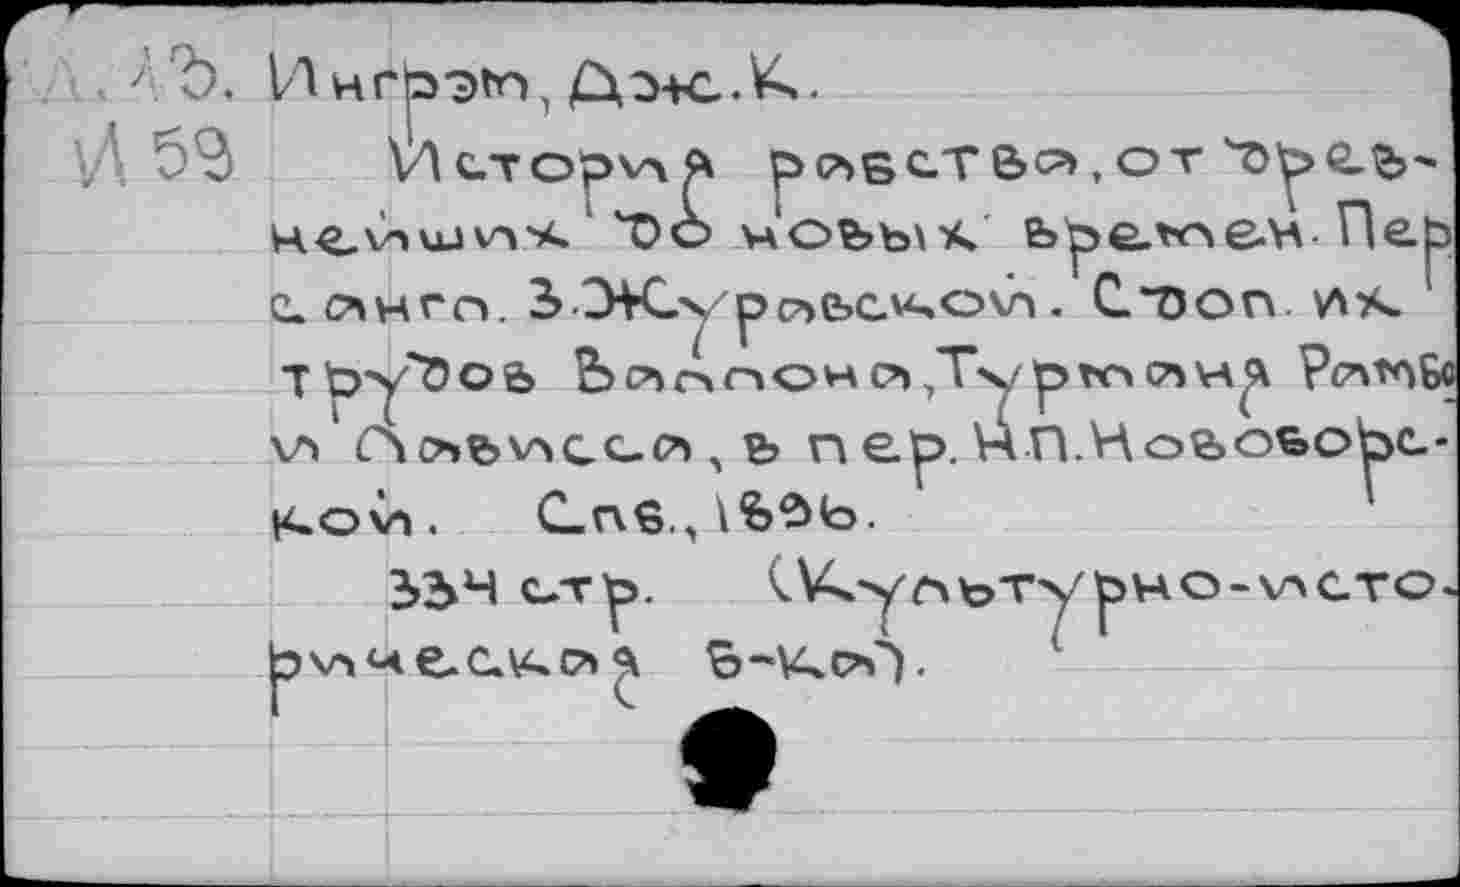 Л. АЪ. Ингрэм, Дж.К.
И 59 История рабства, от древ-
нейших до новых времен. Пер.
с англ. З.Журавской. С доп. их
трудов Валлона, Турманя, Рамбо
и Лависса, в пер. Н.П.Новоборс-
кой. Спб.,
334 стр. (Культурно-исто-
рическая б-ка).